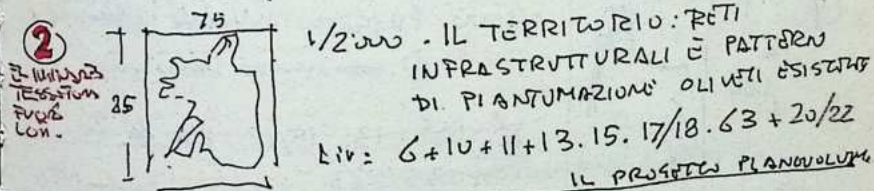 2
75
25
1/2000 . IL TERRITORIO : RETI
INFRASTRUTTURALI E PATTERN
DI PIANTUMAZIONE OLIVETI ESISTENTE
Liv = 6 + 10 + 11 + 13 . 15 . 17/18 . 63 + 20/22
IL PROGETTO